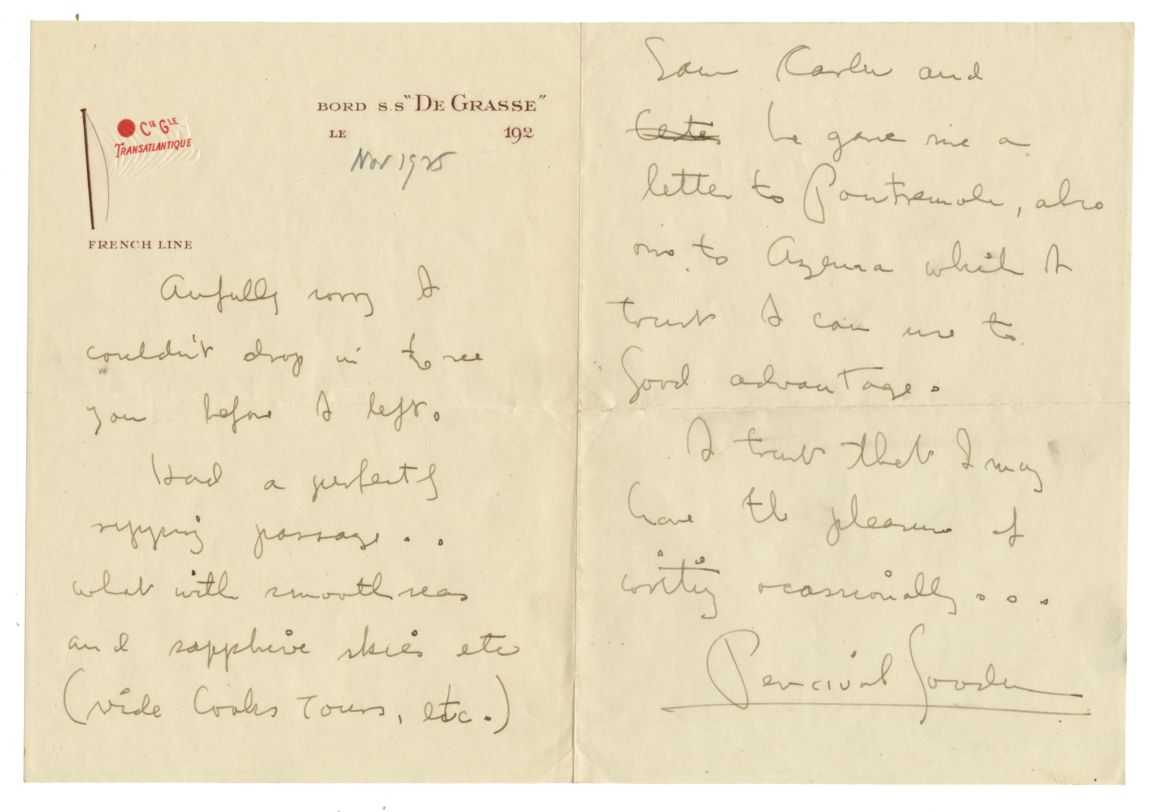 BORD S.S "DE GRASSE"
LE 192
Nov 1925
CIE GLE
TRANSATLANTIQUE
FRENCH LINE
Awfully sorry I
couldn't drop in to see
you before I left.
Had a perfectly
ripping passage..
what with smooth seas
and sapphire skies etc
(vide Cooks Tours, etc.)
Saw Carlu and
he gave me a
letter to Pontremoli, also
one to Azema which I
trust I can use to
good advantage.
I trust that I may
have the pleasure of
writing ocassionally...
Percival Goodman